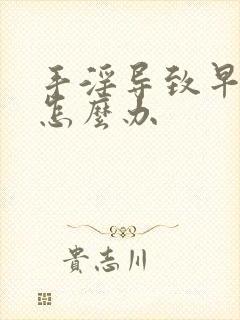 手淫导致早
怎麼办
貴志川